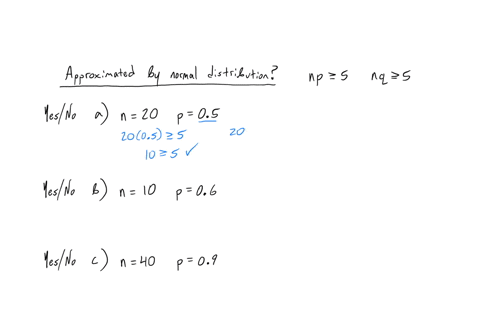 Approximated by normal distribution? np ≥ 5 nq ≥ 5
Yes/No a) n = 20 p = 0.5
20(0.5) ≥ 5 20
10 ≥ 5 ✓
Yes/No b) n = 10 p = 0.6
Yes/No c) n = 40 p = 0.9